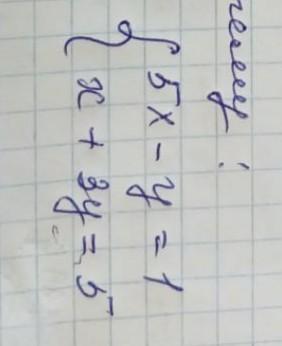 { 5x - y = 1
x + 3y = 5